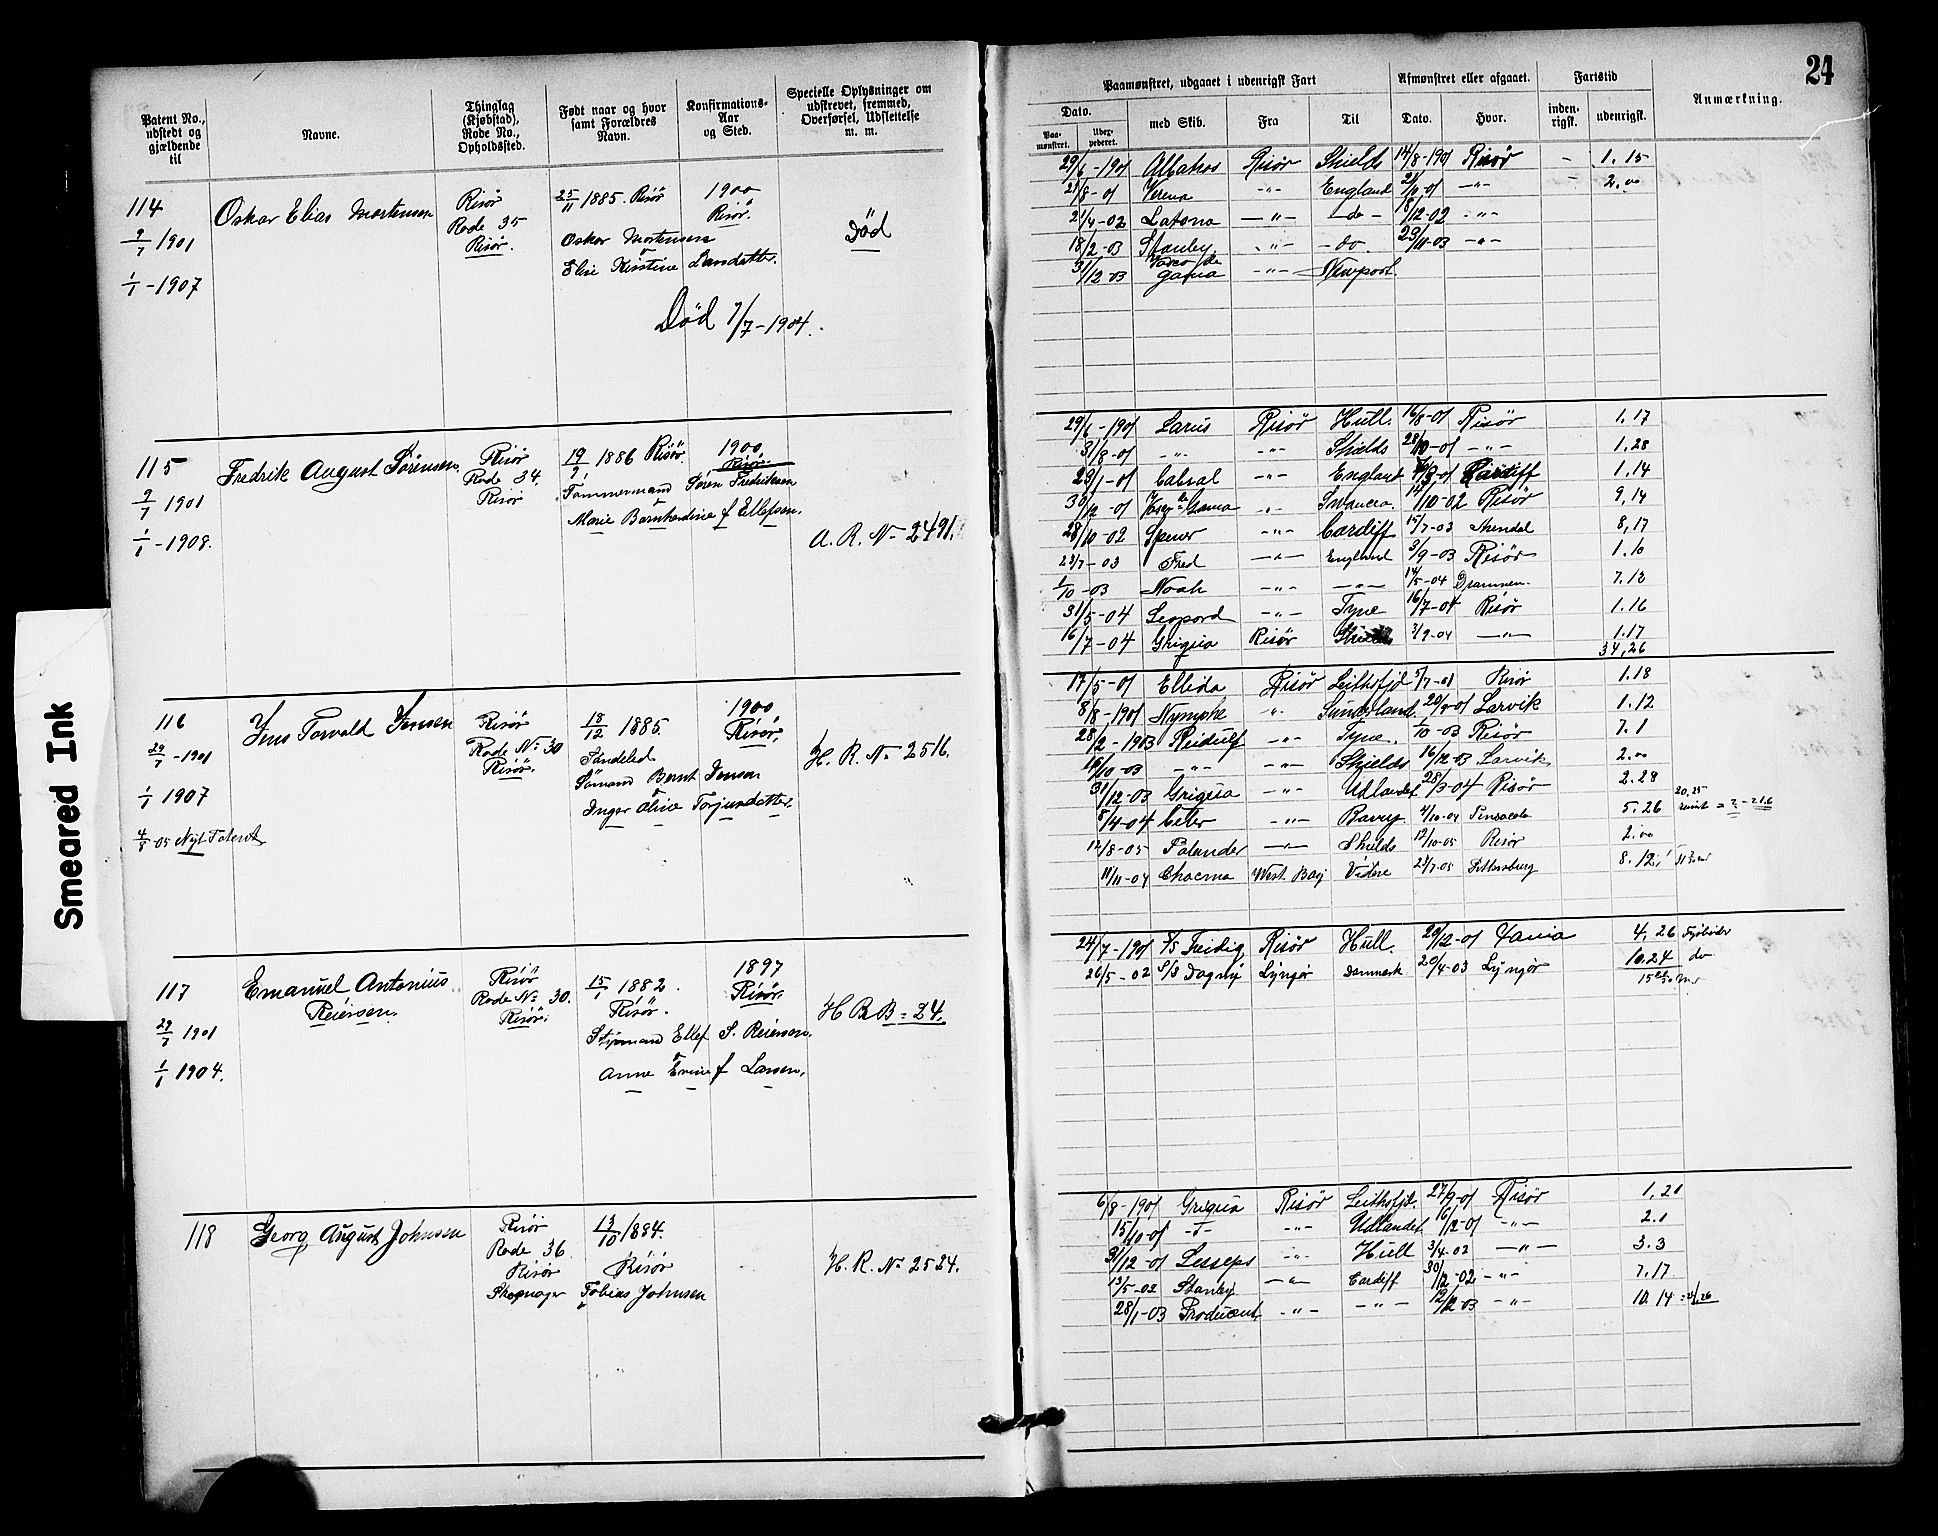 24
Patent No., udstedt og gjældende til
Navne.
Thinglag (Kjøbstad), Rode No., Opholdssted.
Født naar og hvor samt Forældres Navn.
Konfirmations-Aar og Sted.
Specielle Oplysninger om udskrevet, fremmed, Overførsel, Udslettelse m. m.
Paamønstret, udgaaet i udenrigsk Fart
Afmønstret eller afgaaet.
Fartstid
Anmærkning.
Dato.
Paa-mønstret.
med Skib.
Fra
Til
Dato.
Hvor.
inden-rigsk.
udenrigsk.
114
9/7 1901
1/1 - 1907
Oskar Elias Mortensen
Risør
Rode 35
Risør.
25/11 1885. Risör
Oskar Mortensen
1900
Risör.
Död
Död 7/7 - 1904.
29/6 - 1901 Albatros Risør Shields 14/8 - 1901 Risør - 1. 15
21/8 - 01 Verena -"- England -"- - 2.00
21/4 - 02 Latona -"- - do - 18/12 - 02 -"-
18/2 - 03 Stanley -"- - do 23/11 - 03 -"-
31/12 03 Vasco de Gama -"- Newport
115
9/7 1901
1/1 - 1908.
Fredrik August Sørensen.
Risør
Rode 34.
Risør
1886 Risör
Tømmermand Sören Fredriksen
Marie Barnhardine f Ellefsen.
1900
Risør.
A. R. No 2491.
29/6 - 1901 Larus Risör Hull 16/8 - 01 Risör 1.17
31/8 - 01 -"- -"- Shields -"- 1,28
Cabral -"- England Cardiff 1,14
Gama -"- 10 - 02 Risör 9,14
28/10 - 02 -"- Cardiff 15/7 - 03 Arendal 8,17
23/7 - 03 Fred -"- England 3/9 - 03 Risör 1.10
1/10 - 03 Noah -"- -"- 14/5 - 04 Drammen. 7.13
31/5 - 04 Leopard -"- Tyne 16/7 - 04 Risör 1.16
16/7 - 04 Griqua Risör Shields 3/9 - 04 -"- 1.17
34,26
116
29/7 - 1901
1/1 1907
4/5 - 05 Nyt Patent
Jens Torvald Jensen
Risør
Rode No 30
Risör.
18/12 1885.
Söndeled
Sømand Bernt Jensen
Inger Oline Torjusdatter.
1900
Risör.
H. R. No 2516.
17/5 - 01 Ellida Risör Leithsfjd 5/7 - 01 Risör 1.18
8/8 - 1901 Nymphe -"- Sunderland Larvik 1.12
28/2 - 1903 Reidulf -"- Tyne. 1/10 - 03 Risör 7.1
10 - 03 -"- -"- Shields 16/12 03 Larvik 2.00
31/12 03 Griqua -"- Udlandet 28/3 - 04 Risör 2.28
8/4 - 04 Ceter -"- 4/10 - 04 Pensacola 5.26
12/8 - 05 Palander -"- Shields 12/10 - 05 Risör 2.00
11/11 - 04 Chacma West. Bay 23/7 - 05 8.12
117
29/7 1901
1/1 1904.
Emanuel Antonius
Reiersen.
Risör
Rode No 30.
Risör.
15/1 1882.
Risör.
Styrmand Ellef S. Reiersen.
Anne Evine f Larsen.
1897
Risör.
H R B = 24.
24/7 - 1901 S/S Freidig Risör Hull. 20/12 - 01 4,26 Fyrböder
26/5 - 02 S/S Dagny Lyngör Danmark 20/4 - 03 Lyngör 10.24 do
118
Georg August Johnsen
Risör
Rode 36
Risör
13/10 1884.
Risör
Tobias Johnsen
H. R. No 2524.
6/8 - 1901 Griqua Risör Leithsfjd. 27/9 - 01 Risör 1,20
15/10 - 01 -"- -"- Udlandet 16/12 - 01 -"- 2.1
31/12 - 01 Lesseps -"- Hull 3/4 - 02 -"- 3.3
13/5 - 02 Stanley -"- Cardiff 30/12 - 02 -"- 7.17
28/1 - 03 Producent -"- -"- 12/12 03 -"- 10.14
Smeared Ink